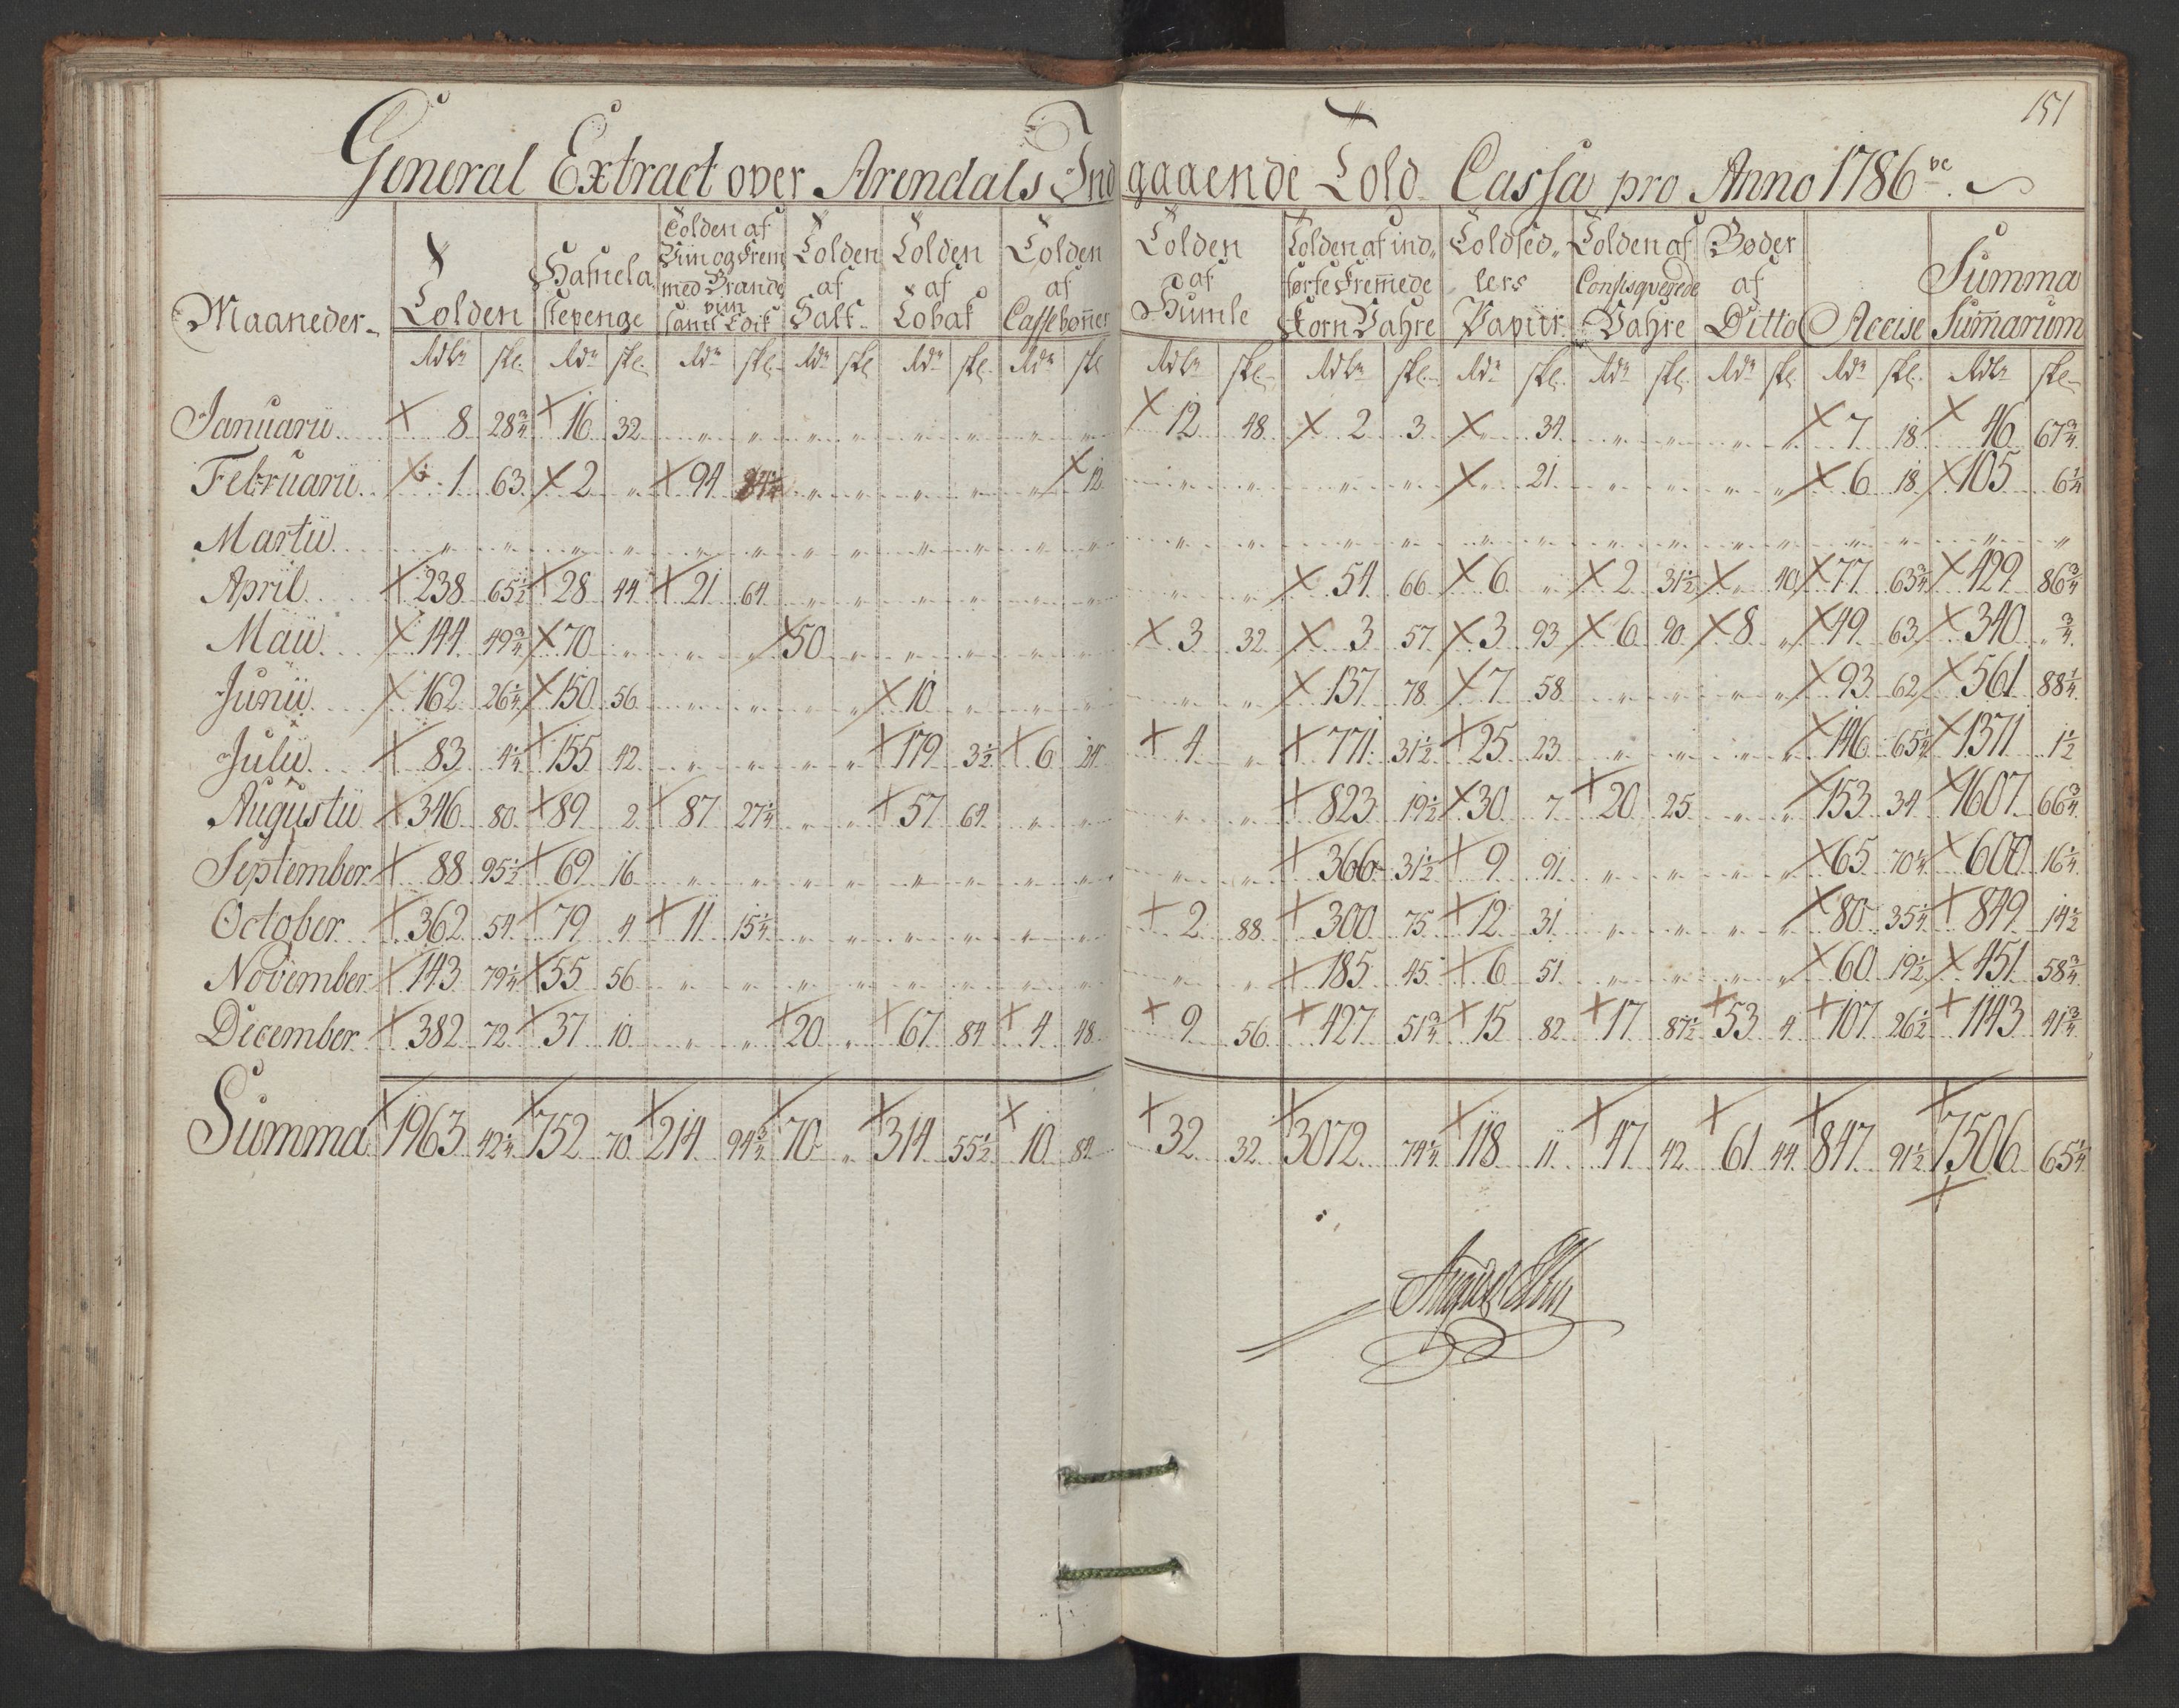 151
General Extract over Arendals Indgaaende Told Cassa pro Anno 1786
Maaneder
Tolden
Hafnela
stepenge
Tolden af
Viin og frem
med Brænde
viin
samt Edik
Tolden
af
Salt
Tolden
af
Tobak
Tolden
af
Caffebønner
Tolden
af
Humle
Tolden af ind
førte Fremede
Korn Vahre
Toldsed
lers
Papiir
Tolden af
Confisqverede
Vahre
Bøder
af
Ditto
Accise
Summa
Summarum
Rdlr skl. Rdr skl. Rdr skl. Rdr skl Rdr skl. Rdr skl Rdlr skl. Rdlr skl. Rdr skl. Rdr skl. Rdr skl. Rdr skl. Rdlr skl.
Januarii 8 28¾ 16 32 " " " " " " " " 12 48 2 3 " 34 " " " " 7 18 46 67¾
Februarii 1 63 2 " 94 " " " " " 12 " " " " " 21 " " " " 6 18 105 6¼
Martii " " " " " " " " " " " " " " " " " " " " " " " " " "
April 238 65½ 28 44 21 64 " " " " " " " " 54 66 6 " 2 31½ " 40 77 63¾ 429 86¾
Maii 144 49¾ 70 " " " 50 " " " " " 3 32 3 57 3 93 6 90 8 " 49 63 340 " ¾
Junii 162 26¼ 150 56 " " " " 10 " " " " " 137 78 7 58 " " " " 93 62 561 88¼
Julii 83 4¼ 155 42 " " " " 179 3½ 6 24 4 " 771 31½ 25 23 " " " " 146 65¼ 1371 1½
Augustii 346 80 89 2 87 27¼ " " 57 64 " " " " 823 19½ 30 7 20 25 " " 153 34 1607 66¾
September 88 95½ 69 16 " " " " " " " " " " 366 31½ 9 91 " " " " 65 70¼ 600 16¼
October 362 54 79 4 11 15¼ " " " " " " 2 88 300 75 12 31 " " " " 80 35¼ 849 14½
November 143 79¼ 55 56 " " " " " " " " " " 185 45 6 51 " " " " 60 19½ 451 58¾
December 382 72 37 10 " " 20 " 67 84 4 48 9 56 427 51¾ 15 82 17 87½ 53 4 107 26½ 1143 41¾
Summa 1963 42¼ 752 70 214 94¾ 70 " 314 55½ 10 84 32 32 3072 74¼ 118 11 47 42 61 44 847 91½ 7506 65¼